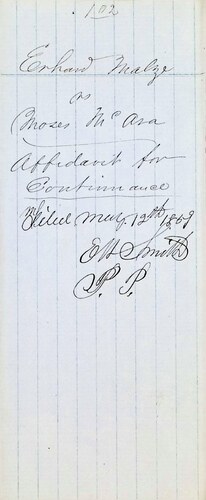 102
Erhard Malze
vs
Moses McAra
Affidavit for
Continuance
Filed May 12th 1859
E H Smith
P. P.